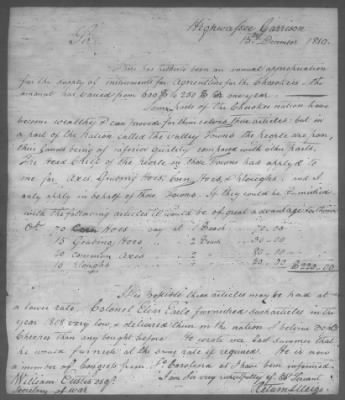 Highwassee Garrison
15th December 1810.
Sir,
There has hitherto been an annual appropriation
for the supply of instruments for Agriculture for the Cherokees - the
amount has varied from 600 $ to 250 $ for one year.
Some parts of the Cherokee nation have
become wealthy & can provide for themselves these articles but in
a part of the Nation called the Valley Towns the people are poor,
their lands being of inferior quality compared with other parts.
The head Chief of the people in those Towns has applyd to
me for Axes, Grubing Hoes, Corn Hoes, & Ploughs, and it
only apply in behalf of those Towns. If they could be furnished
with the following articles it would be of great advantage to them
70 Corn Hoes say at 1 $ each 70.00
15 Grubing Hoes 2 $ each 30.00
common Axes 2
ploughs 2 $220.00
It is possible these articles may be had at
a lower rate. Colonel Elias Earle furnished such articles in the
year 1808 very low & delivered them in the nation I believe
cheaper than any bought before. He wrote me last summer that
he would furnish at the same rate if required. He is now
a member of Congress from So. Carolina as I have been informed.
I am Sir very respectfully
William Eustis esqr.
Secretary of War
Return J. Meigs